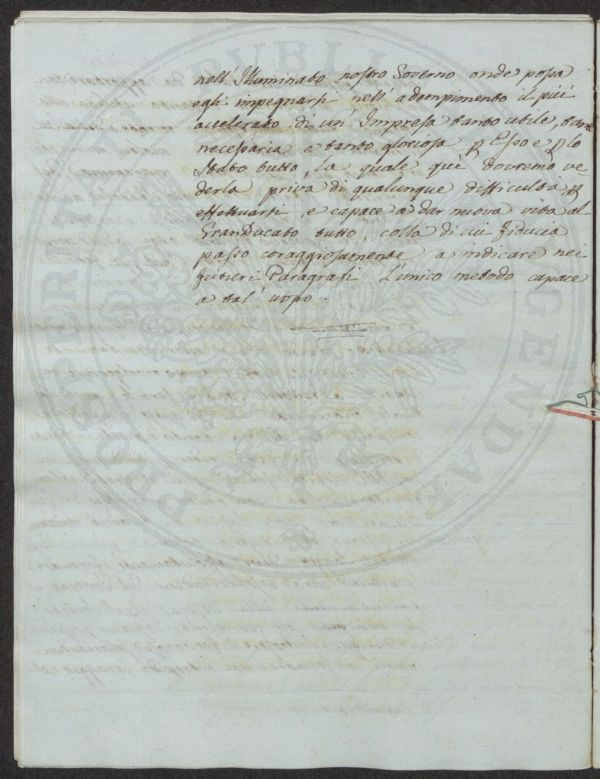 nell' Illuminato nostro Governo onde possa
egli impegnarsi nell' adempimento il piu'
accelerato di un' Impresa tanto utile, tanto
necessaria e tanto gloriosa p Esso e p lo
Stato tutto, la quale quì dovremo ve
derla priva di qualunque difficultà p
effettuarsi, e capace a dar nuova vita al
GranDucato tutto, colla di cui fiducia
passo coraggiosamente a indicare nei
futuri Paragrafi l'unico metodo capace
a tal' uopo.
PROSPERITATI PUBLICAE AUGENDAE